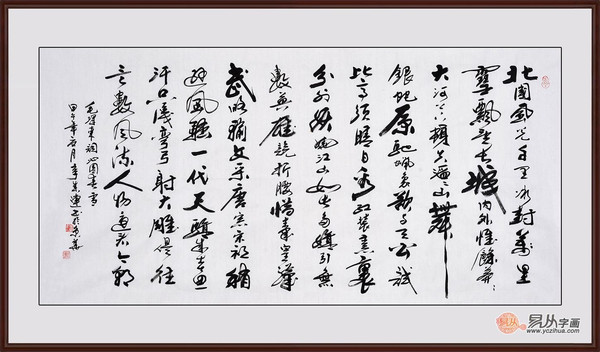 北國風光千里冰封萬里
雪飄望長城內外惟餘莽＝
大河上下頓失滔＝山舞
銀蛇原馳蠟象欲與天公試
比高須晴日看紅裝素裹
分外妖嬈江山如此多嬌引無
數英雄競折腰惜秦皇漢
武略輸文采唐宗宋祖稍
遜風騷一代天驕成吉思
汗只識彎弓射大雕俱往
矣數風流人物還看今朝
毛澤東詞沁園春雪
甲午年 月李 書於京華
易从字画
www.yczihua.com